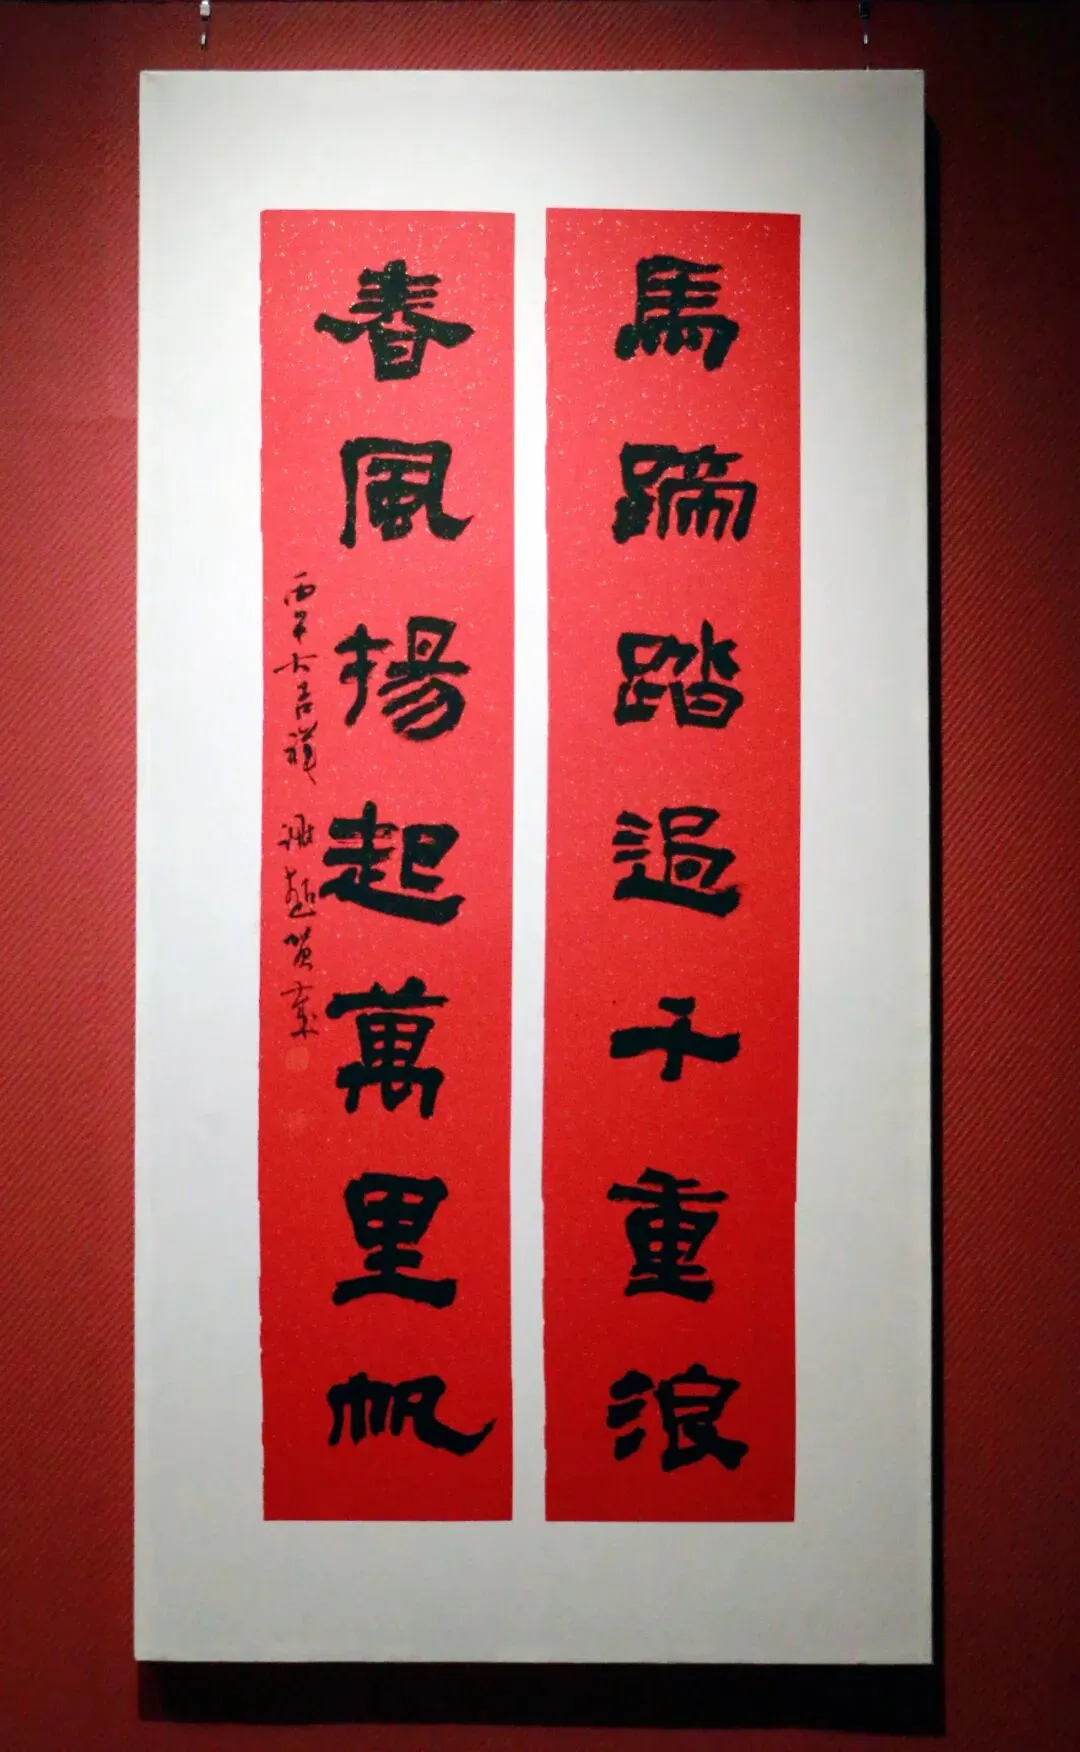 馬蹄踏過千重浪
春風揚起萬里帆
丙午大吉祥